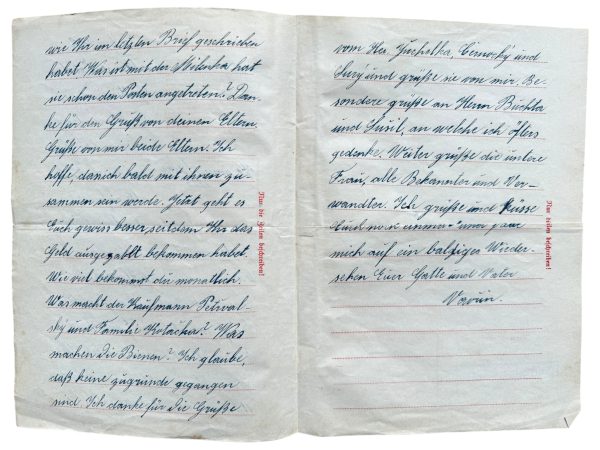 wie Ihr im letzten Brief geschrieben
habet. Was ist mit der Milenka hat
sie schon den Posten angetreten? Dan-
ke für den Gruß von deinen Eltern.
Grüße von mir beide Eltern. Ich
hoffe, dass ich bald mit ihnen zu-
sammen sein werde. Jetzt geht es
Euch gewiss besser seitdem Ihr das
Geld ausgezahlt bekommen habet.
Wie viel bekommst du monatlich.
Was macht der Kaufmann Petřval-
ský und Familie Kotačka? Was
machen die Bienen? Ich glaube,
daß keine zugrunde gegangen
sind. Ich danke für die Grüße
Nur die Zeilen beschreiben!
vom Her. Černocký und
und grüße sie von mir. Be-
sondere grüße an Herrn Buchta
und Susil, an welche ich öfters
gedenke. Weiter grüße die untere
Frau, alle Bekannter und Ver-
wandter. Ich grüße und küsse
Euch noch einmal und
mich auf ein baldiges Wieder-
sehen Euer Gatte und Vater
Nur die Zeilen beschreiben!